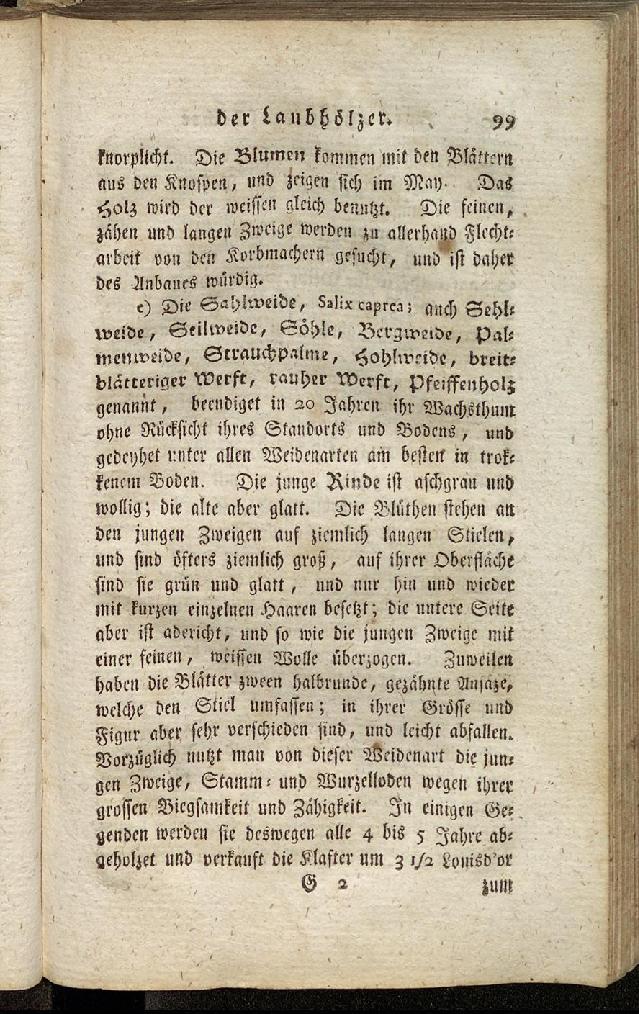 der Laubhölzer. 99
knorplicht. Die Blumen kommen mit den Blättern
aus den Knospen, und zeigen sich im May. Das
Holz wird der weissen gleich benutzt. Die feinen,
zähen und langen Zweige werden zu allerhand Flecht-
arbeit von den Korbmachern gesucht, und ist daher
des Anbaues würdig.
e) Die Sahlweide, Salix caprea; auch Sehl-
weide, Seilweide, Söhle, Bergweide, Pal-
menweide, Strauchpalme, Hohlweide, breit-
blätteriger Werft, rauher Werft, Pfeiffenholz
genannt, beendiget in 20 Jahren ihr Wachsthum
ohne Rücksicht ihres Standorts und Bodens, und
gedeyhet unter allen Weidenarten am besten in trok-
kenem Boden. Die junge Rinde ist aschgrau und
wollig; die alte aber glatt. Die Blüthen stehen an
den jungen Zweigen auf ziemlich langen Stielen,
und sind öfters ziemlich groß, auf ihrer Oberfläche
sind sie grün und glatt, und nur hin und wieder
mit kurzen einzelnen Haaren besetzt; die untere Seite
aber ist adericht, und so wie die jungen Zweige mit
einer feinen, weissen Wolle überzogen. Zuweilen
haben die Blätter zween halbrunde, gezähnte Ansäze,
welche den Stiel umfassen; in ihrer Grösse und
Figur aber sehr verschieden sind, und leicht abfallen.
Vorzüglich nutzt man von dieser Weidenart die jun-
gen Zweige, Stamm- und Wurzelloden wegen ihrer
grossen Biegsamkeit und Zähigkeit. In einigen Ge-
genden werden sie deswegen alle 4 bis 5 Jahre ab-
geholzet und verkauft die Klafter um 3 1/2 Louisd'or
G 2 zum